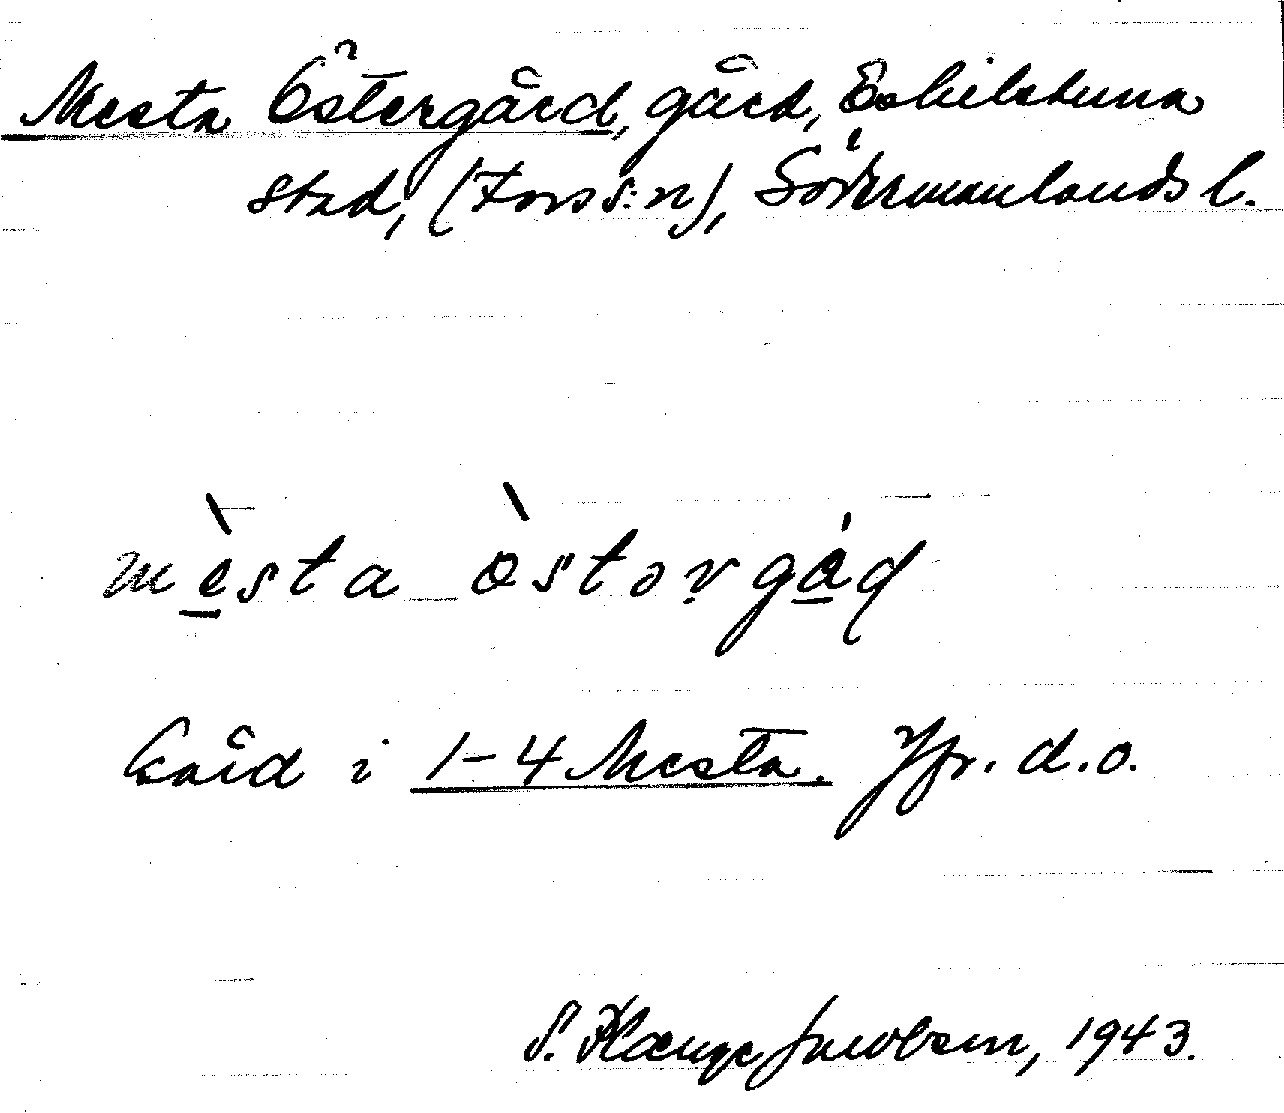 Mesta Östergård, gård, Eskilstuna
stad, (Fors s:n), Södermanlands l.
mè̱sta òstərgá̱d
Gård i 1-4 Mesta. Jfr. d.o.
S. Plænge Jacobson, 1943.